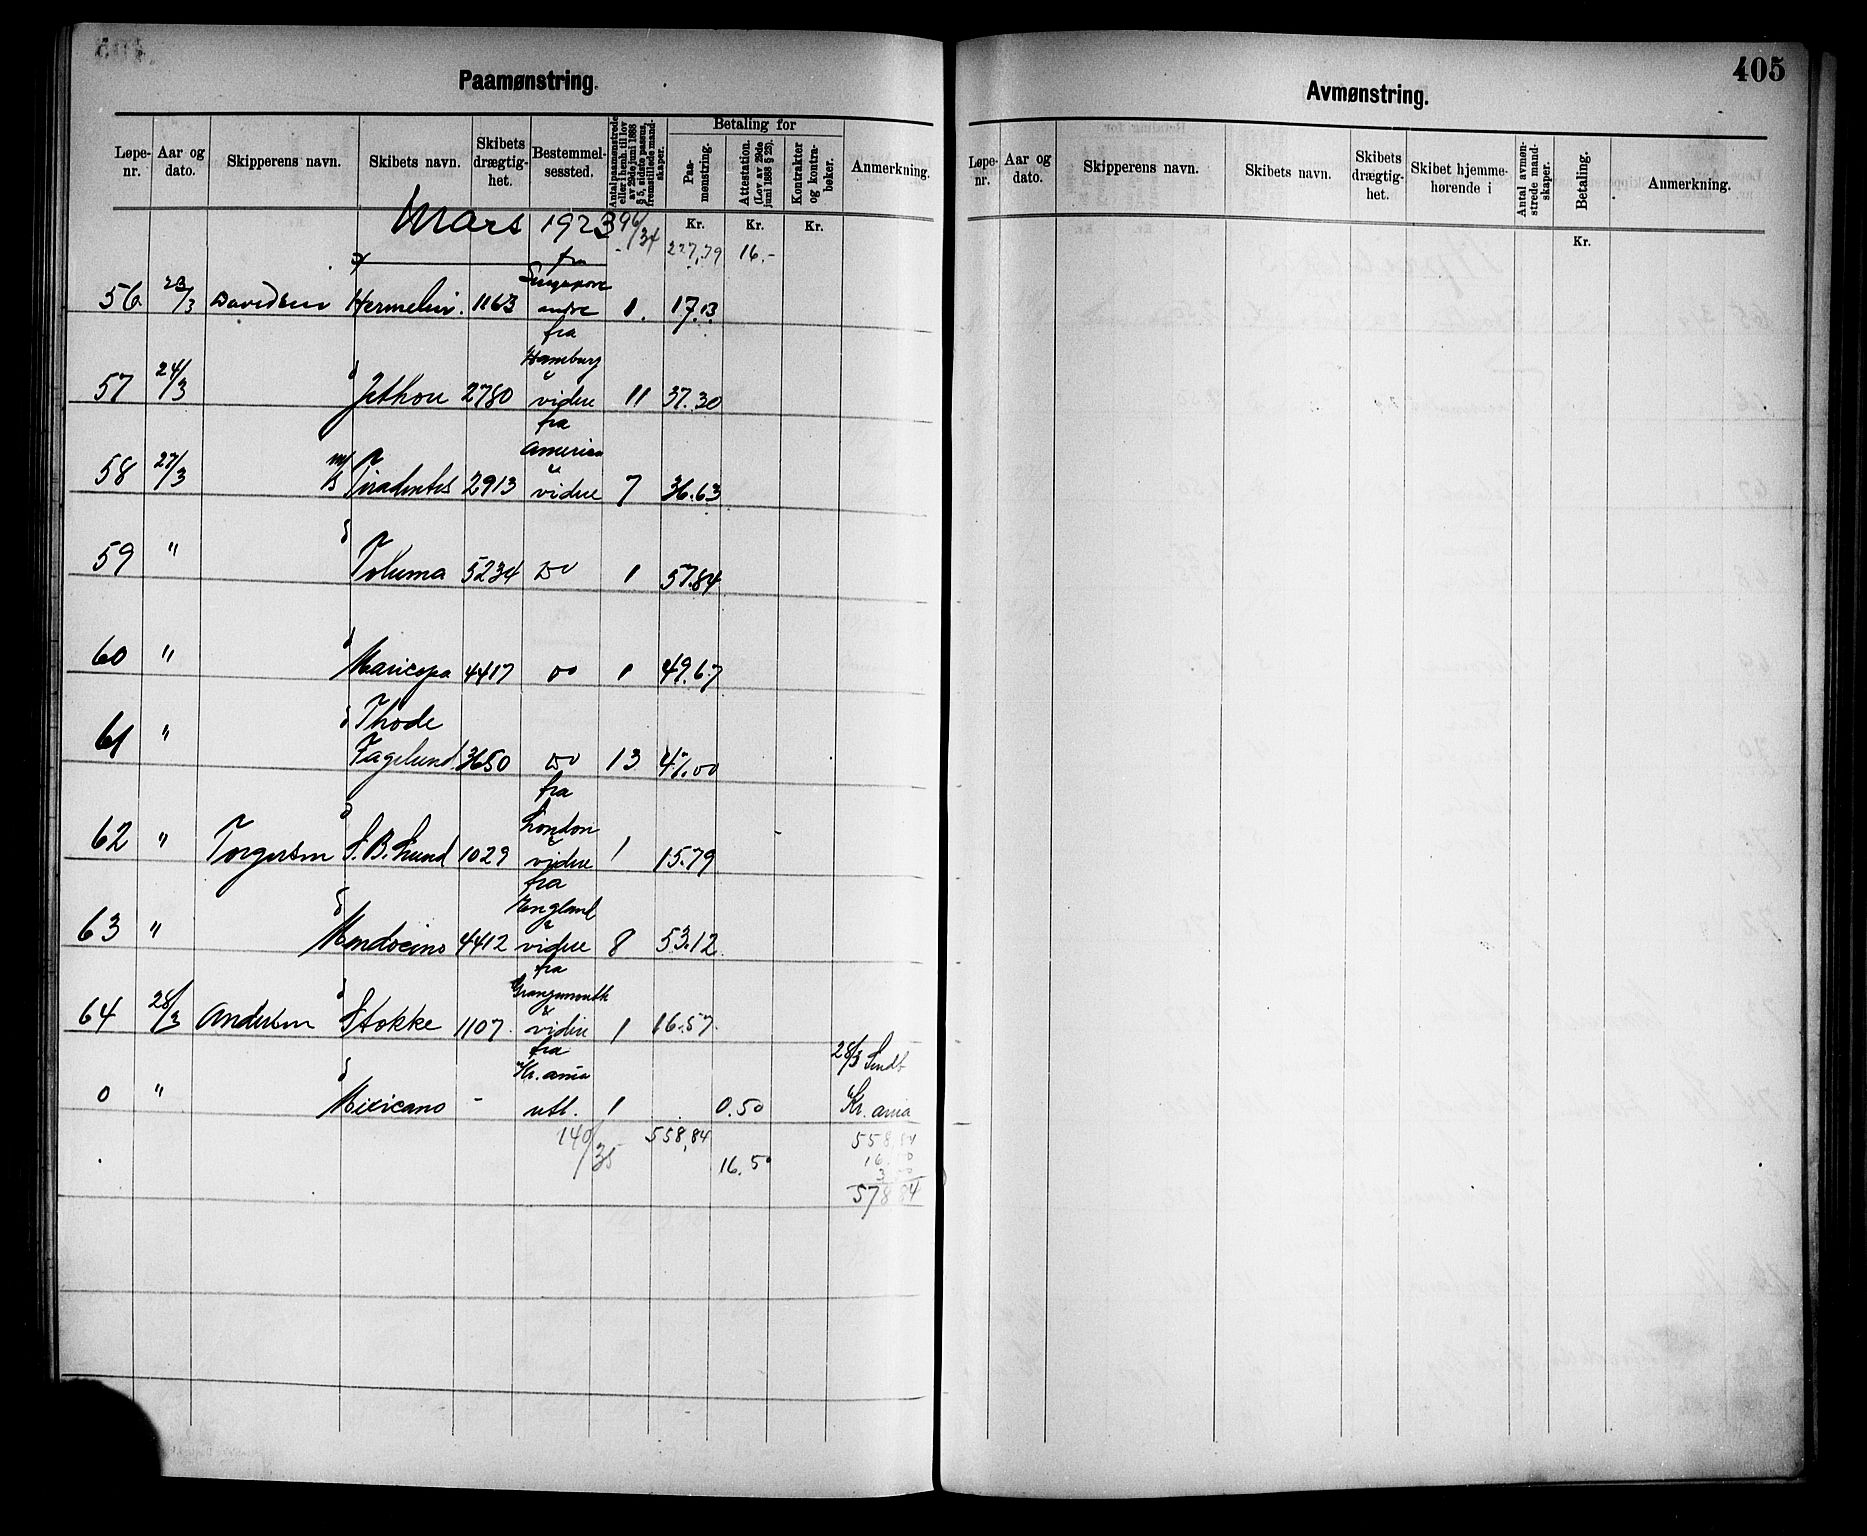 405
Paamønstring.
Løpe-nr. Aar og dato. Skipperens navn. Skibets navn. Skibets drægtig-het. Bestemmel-sessted. Antal paamønstrede eller i henh. til lov av 29de juni 1888 § 5, sidste passus, fremstillede mand-skaper. Betaling for Paa-mønstring. Attestation. (Lov av 29de juni 1888 § 25). Kontrakter og kontra-bøker. Anmerkning.
Kr. Kr. Kr.
Mars 1923 96/34 227,79 16.-
fra
Singapore
56 23/3 Davidsen Hermelin. 1163 1. 17.13
fra
Hamburg
57 24/3 Jethou 2780 videre 11 37.30
fra
America
58 27/3 m/s Tiradentes 2913 videre 7 36.63
59 " Toluma 5234 do 1 57.84
60 " Maricopa 4417 do 1 49.67
61 " Thode
Fagelund 3650 do 13 47.00
fra
London
62 " Torgersen S.B. Lund 1029 videre 1 15.79
fra
England
63 " Mendocino 4412 videre 8 53.12
fra
Grangemouth
64 28/3 Andersen Stokke 1107. videre 1 16.57
fra
Kr. ania
28/3 Sendt
0 " Mexicano - utl. 1 0.50 Kr. ania
140/35 558,84 558,84
16.50
578 84
Avmønstring.
Løpe-nr. Aar og dato. Skipperens navn. Skibets navn. Skibets drægtig-het. Skibet hjemme-hørende i Antal avmøn-strede mand-skaper. Betaling. Anmerkning.
Kr.